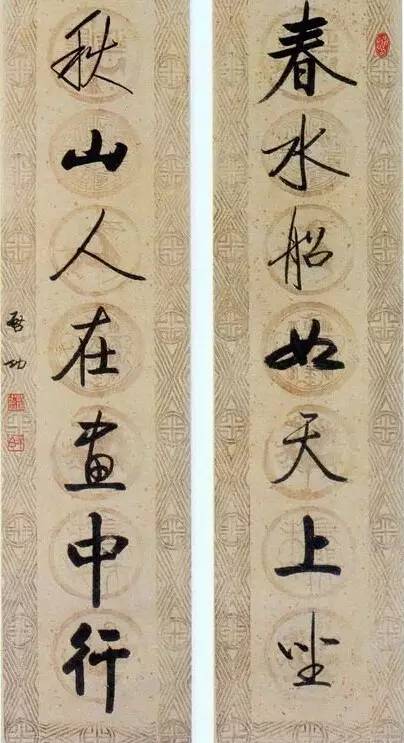 春水船如天上坐
秋山人在畫中行
啟功